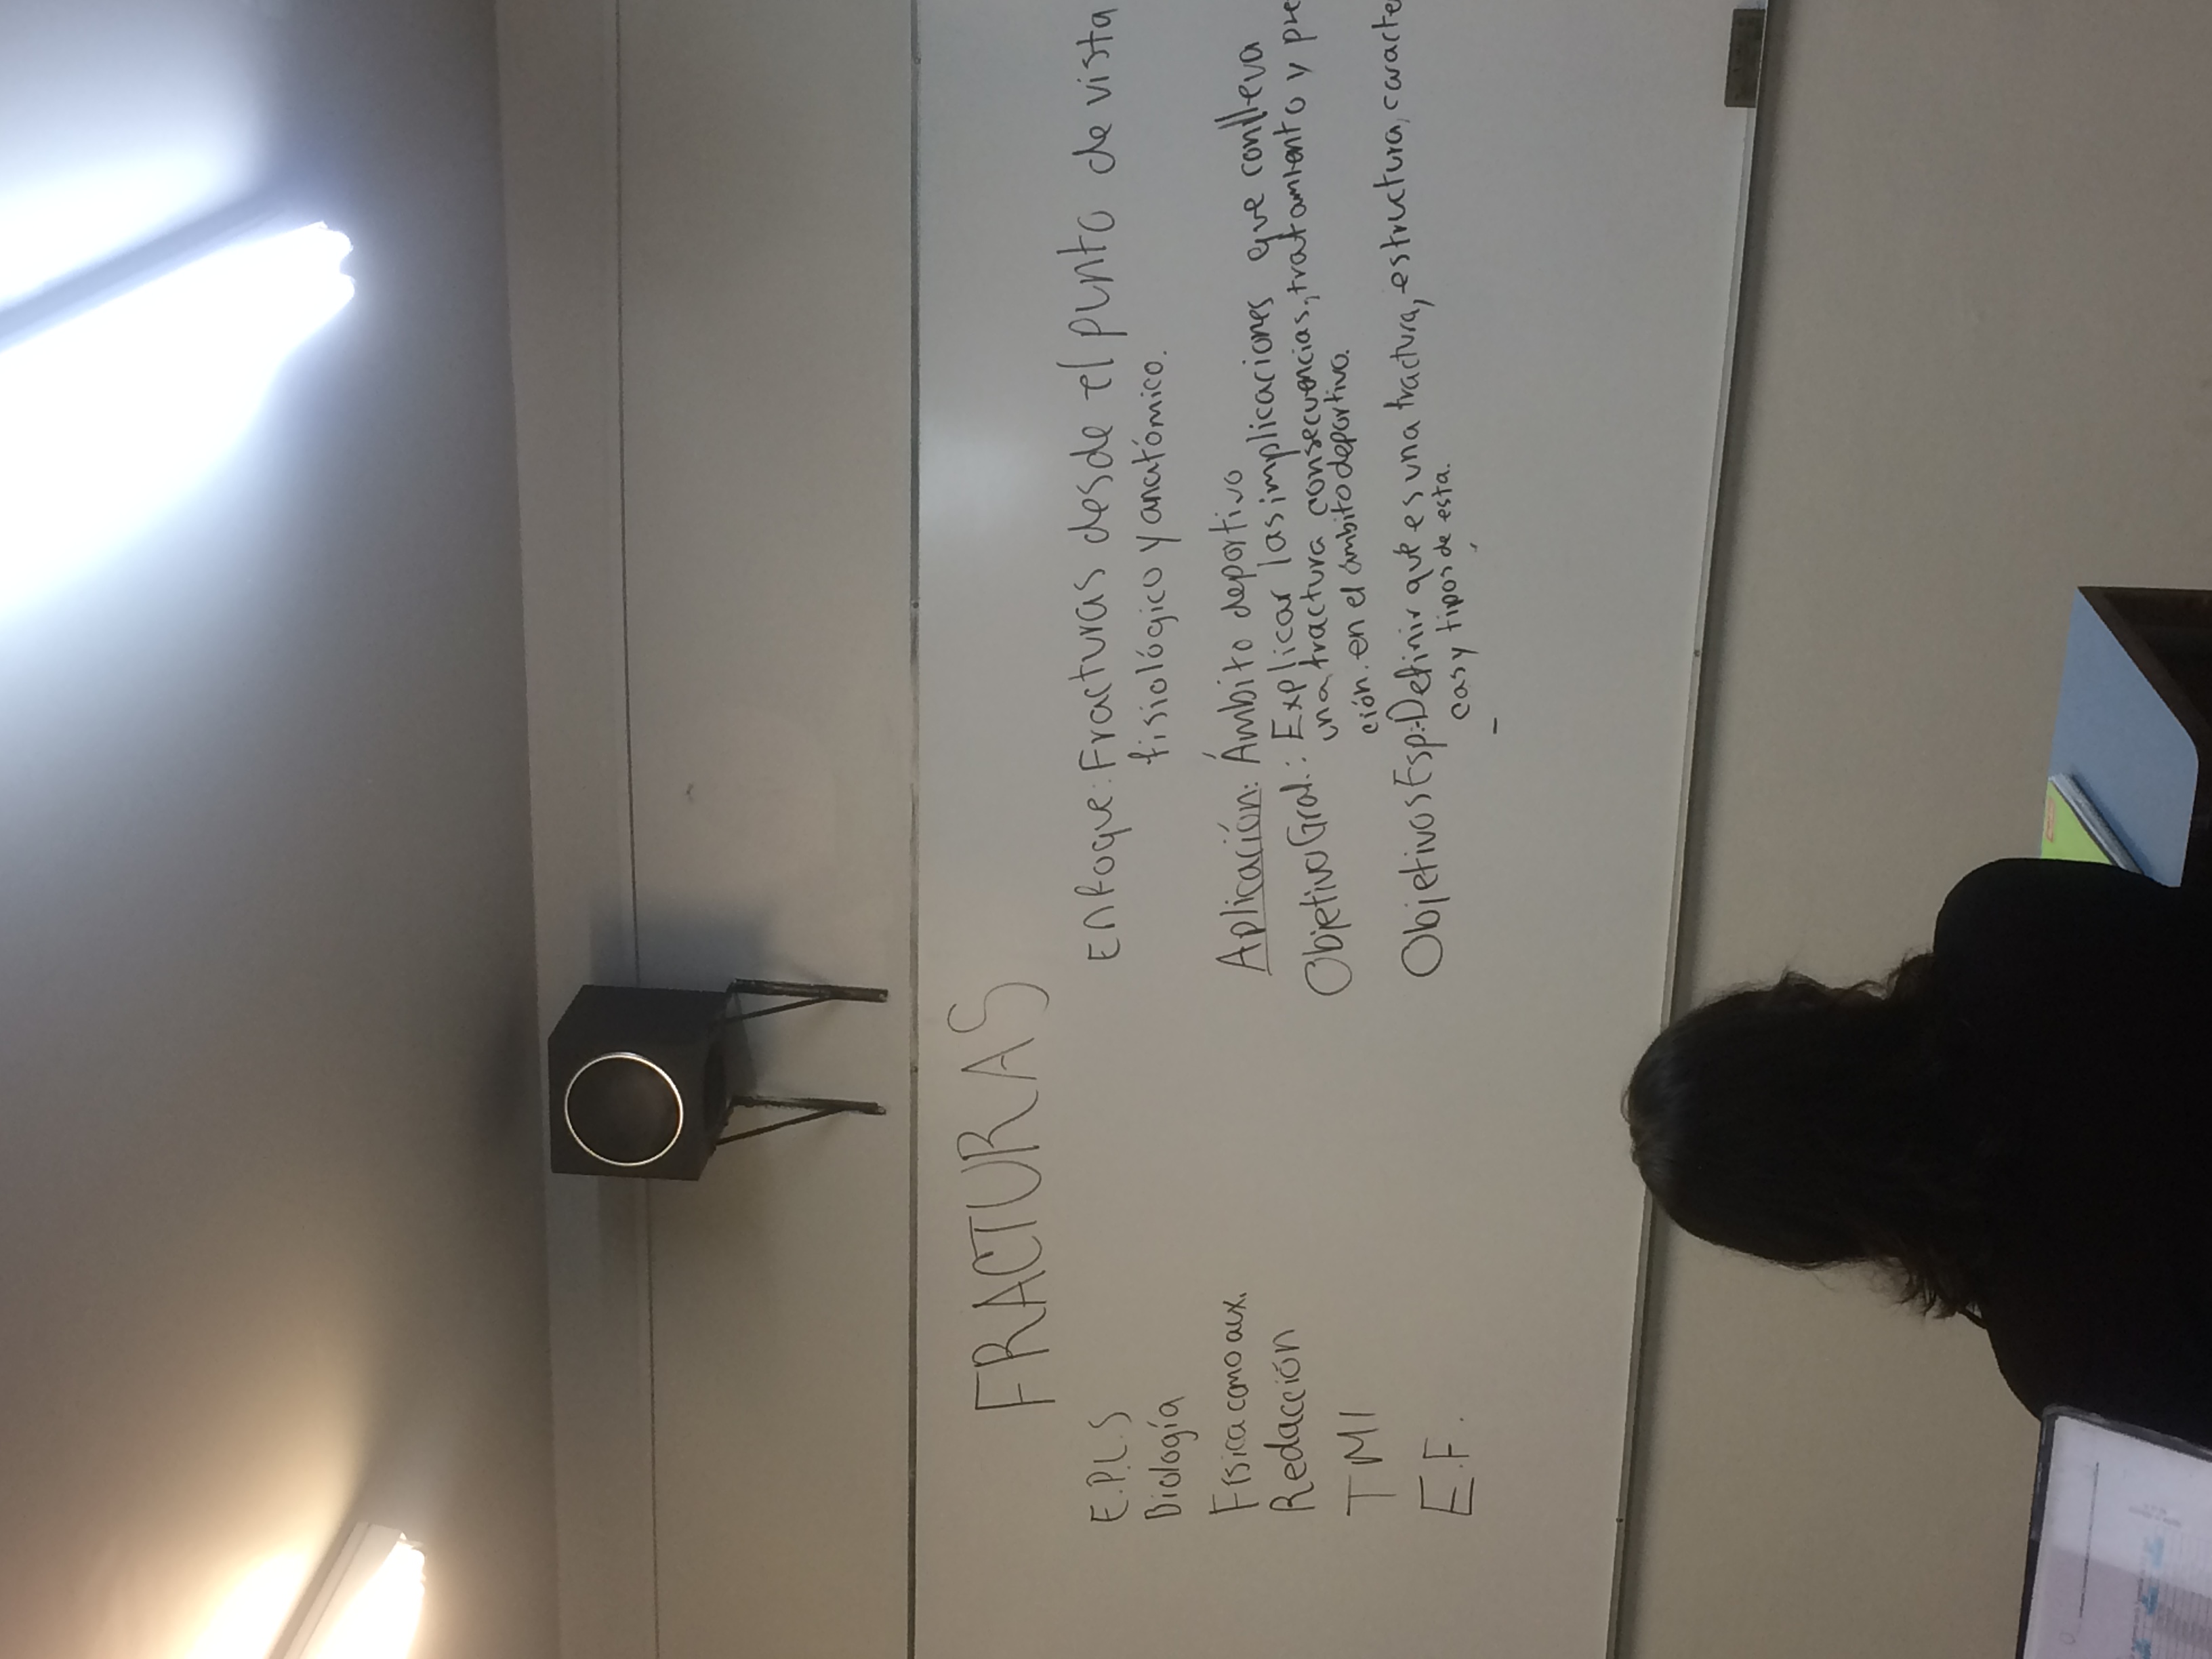 FRACTURAS
E.P.L.S
Biología
Física como aux.
Redacción
TMI
E.F.
Enfoque: Fracturas desde el punto de vista
fisiológico y anatómico.
Aplicación: Ámbito deportivo
Objetivo Gral.: Explicar las implicaciones que conlleva
una fractura consecuencias, tratamiento y pre
ción. en el ámbito deportivo.
Objetivos Esp:-Definir qué es una fractura, estructura, caracte
cas y tipos de esta.
-